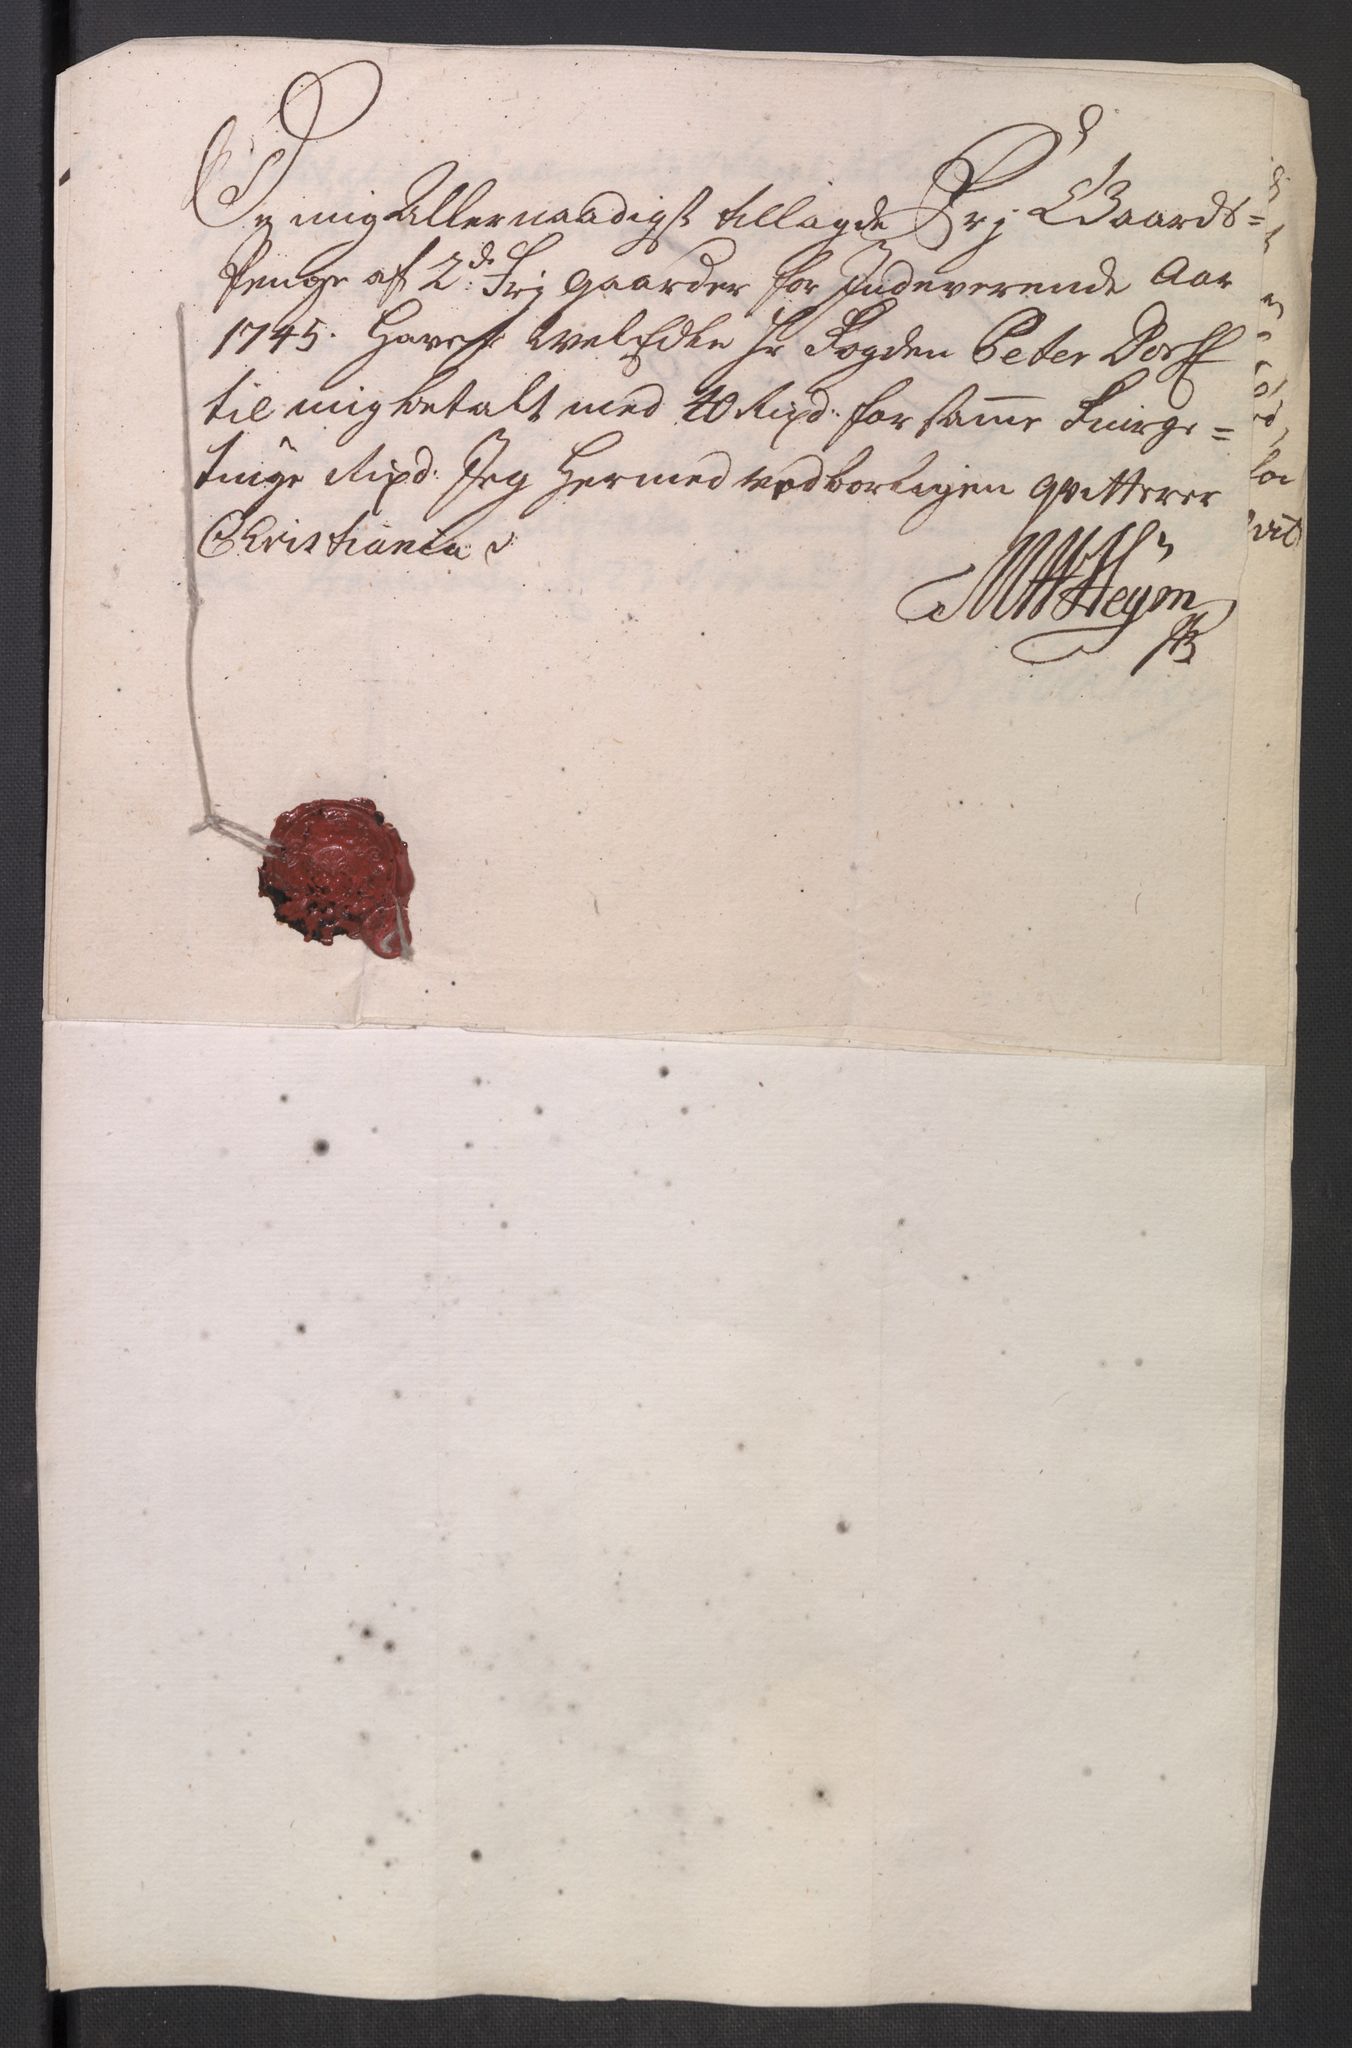 De mig Allernaadigst tillagde Frj Gaards=
Penge af 2de Frj gaarder for Indeverende Aar
1745. Haver Welædle Hr Fogden Peter Dorff
til mig betalt med 40 Rixd: for samme Fuirge=
tuige Rixd: Jeg Hermed vedborligen qvitterer
Christiania d